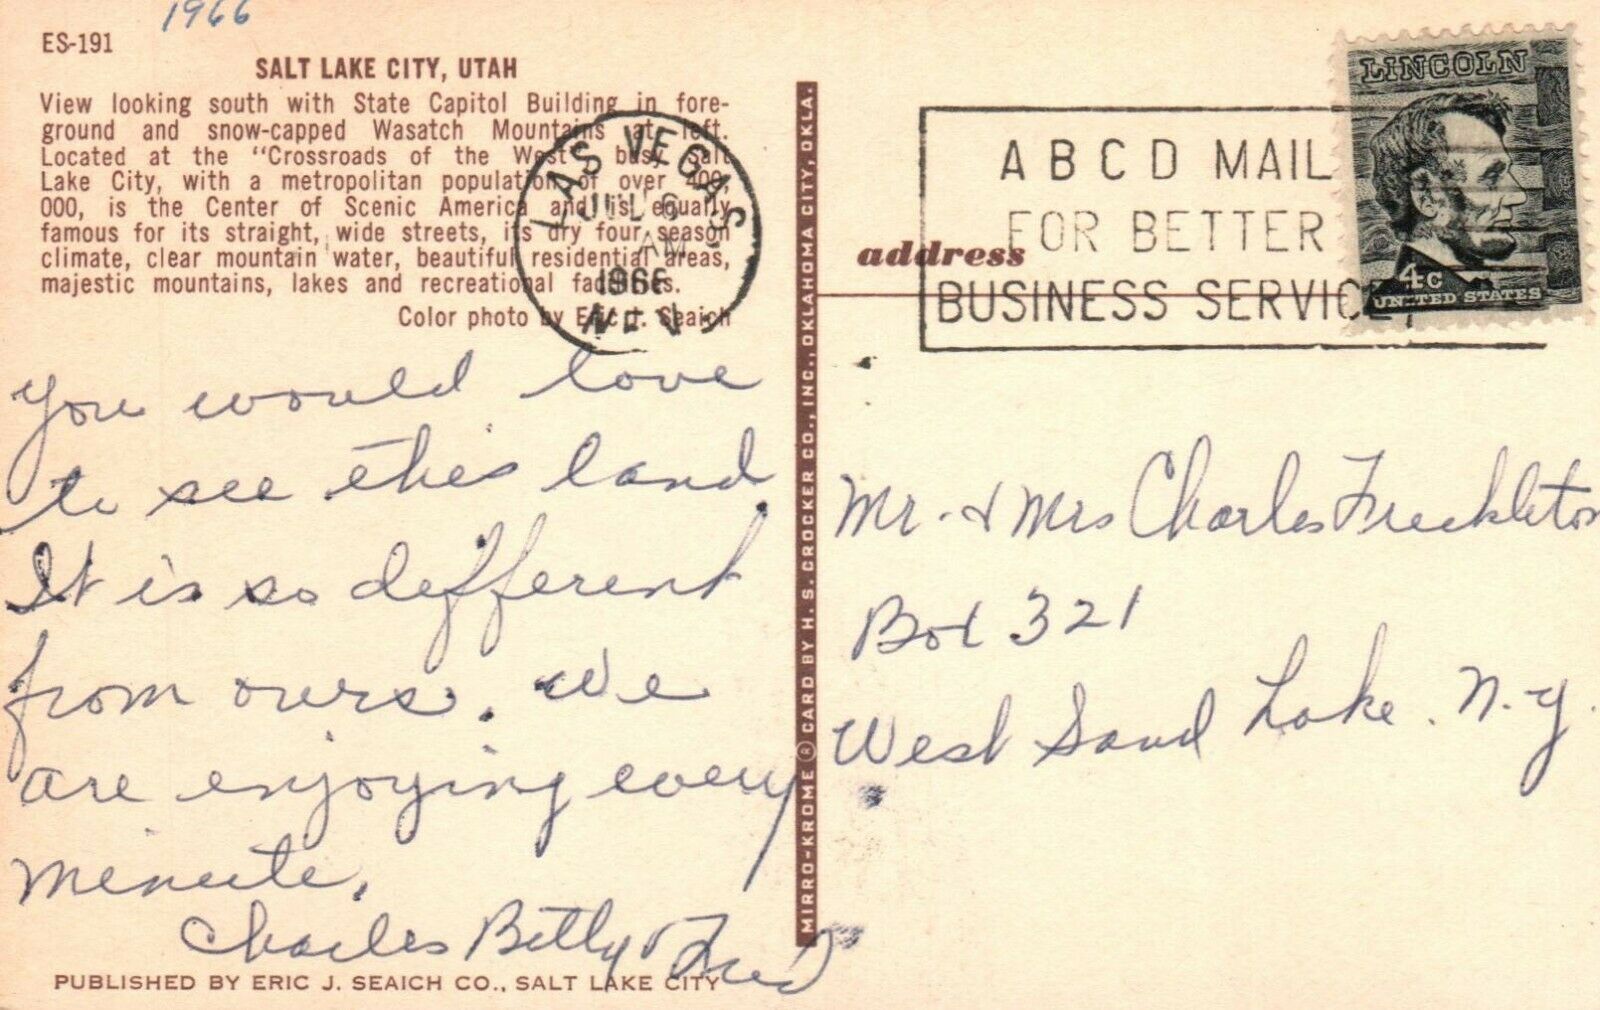 1966
ES-191
SALT LAKE CITY, UTAH
View looking south with State Capitol Building in fore-
ground and snow-capped Wasatch Mountains at left.
Located at the "Crossroads of the West", busy Salt
Lake City, with a metropolitan population of over 400,
000, is the Center of Scenic America and is equally
famous for its straight, wide streets, its dry four season
climate, clear mountain water, beautiful residential areas,
majestic mountains, lakes and recreational facilities.
Color photo by Eric J. Seaich
LAS VEGAS
JUL 6
AM
1966
NEV.
you would love
to see this land.
It is so different
from ours. We
are enjoying every
minute.
Charles Betty & Fred
PUBLISHED BY ERIC J. SEAICH CO., SALT LAKE CITY
MIRRO-KROME ® CARD BY H. S. CROCKER CO., INC., OKLAHOMA CITY, OKLA.
address
A B C D MAIL
FOR BETTER
BUSINESS SERVICE
LINCOLN
4c
UNITED STATES
Mr. & Mrs Charles Freckleton
Box 321
West Sand Lake. N.Y.